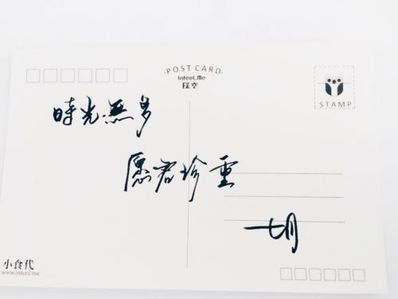 POST CARD
infeel.Me
STAMP
時光無多
愿君珍重
七月
小食代
www.infeel.me